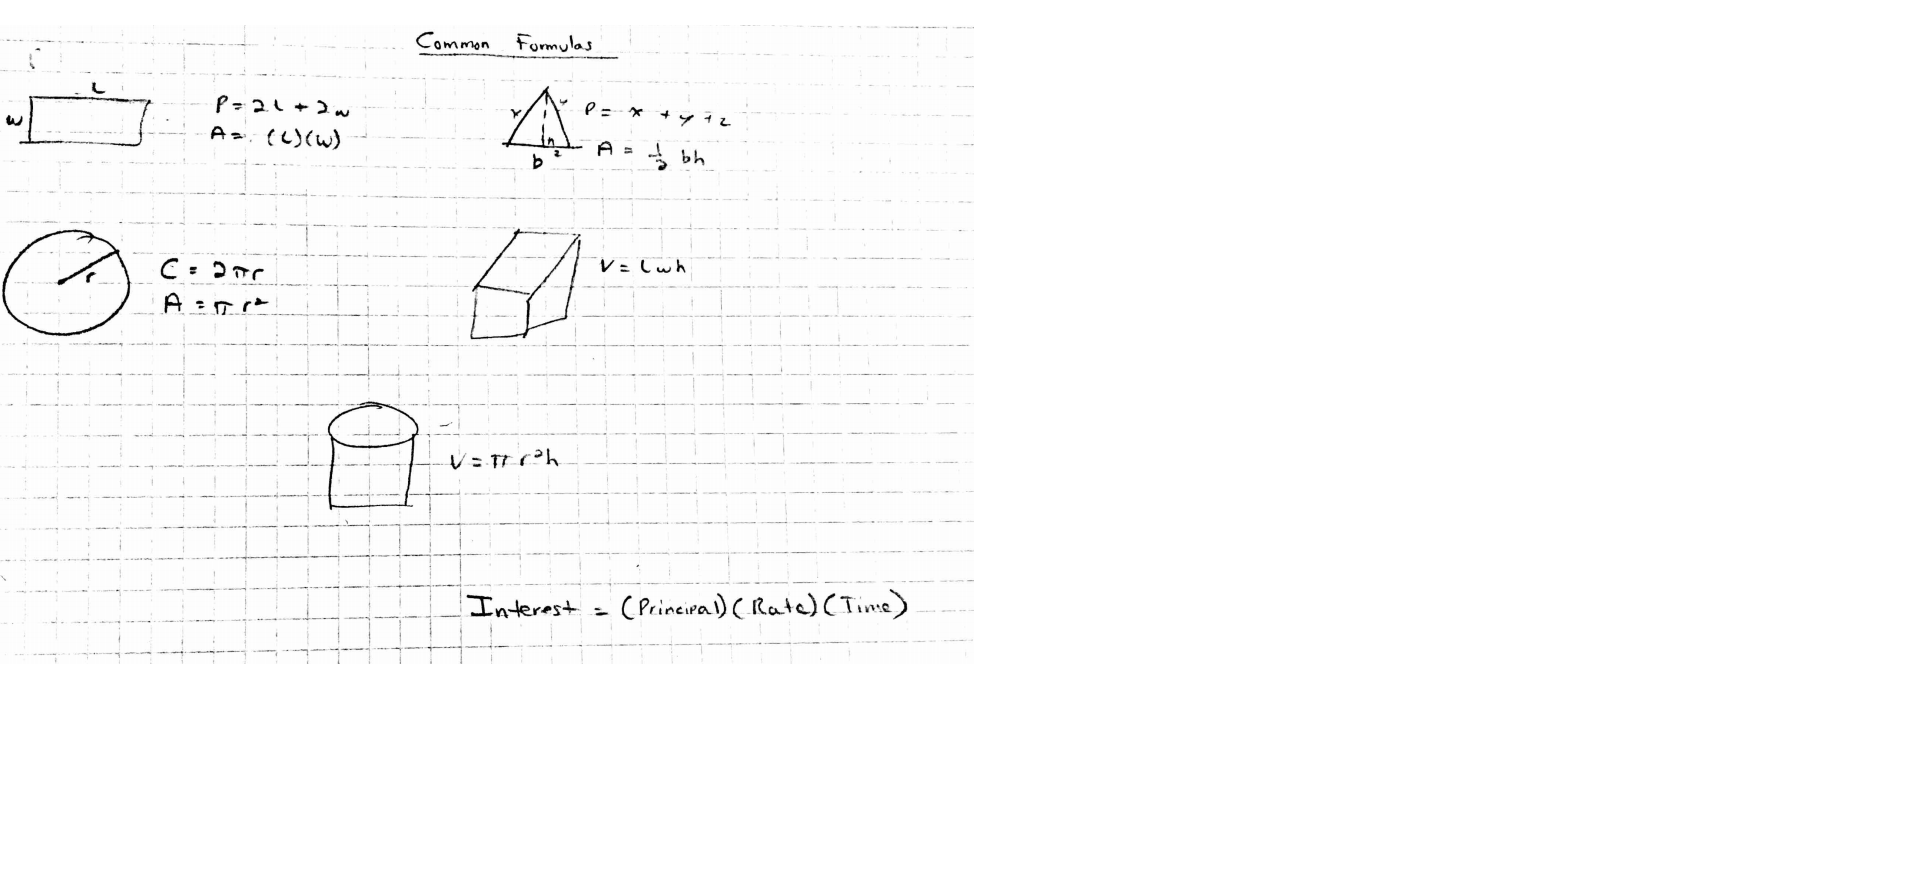 Common Formulas
L
w
P = 2L + 2w
A = (L)(w)
x
y
h
b
z
P = x + y + z
A = 1/2 bh
r
C = 2πr
A = πr²
V = Lwh
V = πr²h
Interest = (Principal)(Rate)(Time)